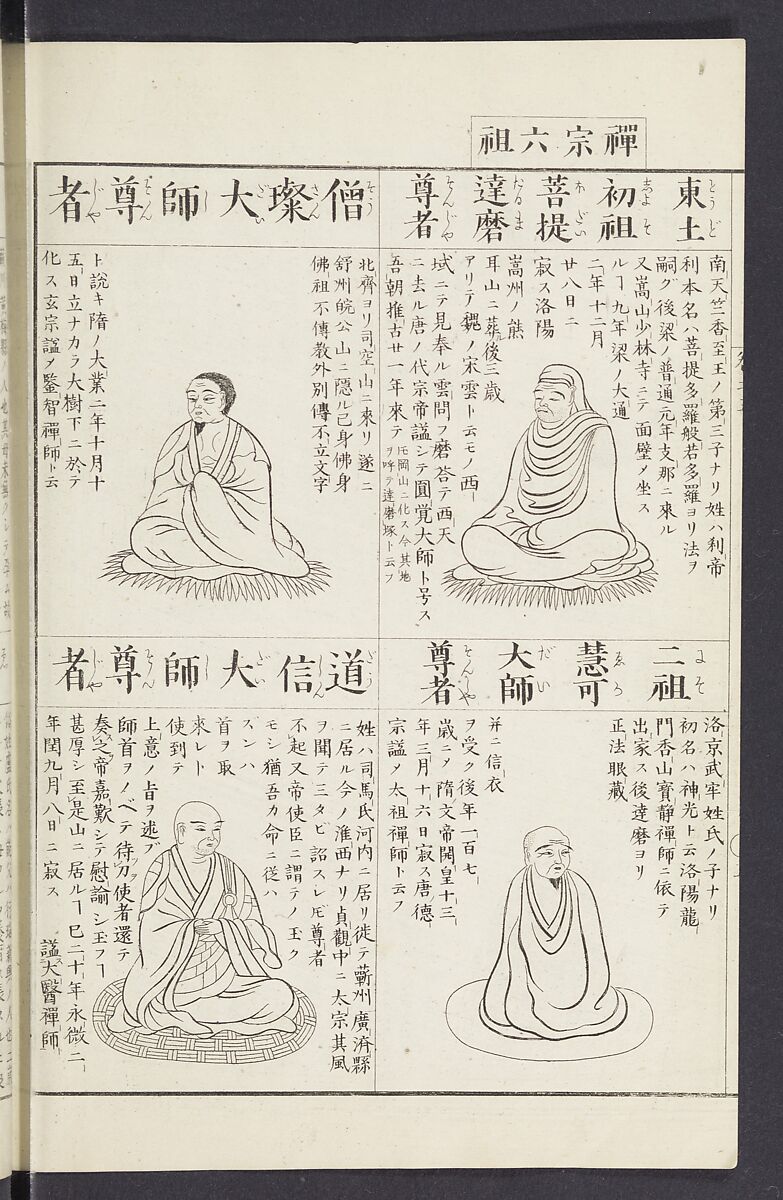 禪宗六祖
東土
初祖
菩提
達磨
尊者
南天竺香至王ノ第三子ナリ姓ハ刹帝
利本名ハ菩提多羅般若多羅ヨリ法ヲ
嗣グ後梁ノ普通元年支那ニ來ル
又嵩山少林寺ニテ面壁ノ坐ス
ルヿ九年梁ノ大通
二年十二月
廿八日ニ
寂ス洛陽
嵩州ノ熊
耳山ニ葬ル後三歳
アリテ魏ノ宋雲ト云モノ西
域ニテ見奉ル雲問フ磨答テ西天
ニ去ル唐ノ代宗帝謚シテ圓覺大師ト号ス
吾朝推古廿一年來テ
岡山ニ化ス今其地
ヲ呼テ達磨塚ト云フ
僧璨大師尊者
北齊ヨリ司空山ニ來リ遂ニ
舒州皖公山ニ隠ル已身佛身
佛祖不傳教外別傳不立文字
ト説キ隋ノ大業二年十月十
五日立ナカラ大樹下ニ於テ
化ス玄宗謚ノ鑒智禪師ト云
二祖
慧可
大師
尊者
洛京武牢姓氏ノ子ナリ
初名ハ神光ト云洛陽龍
門香山寶静禪師ニ依テ
出家ス後達磨ヨリ
正法眼藏
并ニ信衣
ヲ受ク後年一百七
歳ニノ隋文帝開皇十三
年三月十六日寂ス唐德
宗謚ノ太祖禪師ト云フ
道信大師尊者
姓ハ司馬氏河内ニ居リ徙テ蘄州廣濟縣
ニ居ル今ノ淮西ナリ貞觀中ニ太宗其風
ヲ聞テ三タビ詔スレ𪜈尊者
不起又帝使臣ニ謂テノ玉ク
モシ猶吾カ命ニ從ハ
ズンハ
首ヲ取
來レト
使到テ
上意ノ旨ヲ述ブ
師首ヲノベテ待刃使者還テ
奏之帝嘉歎シテ慰諭シ玉フヿ
甚厚シ至是山ニ居ルヿ巳二十年永徴二
年閏九月八日ニ寂ス
謚大醫禪師